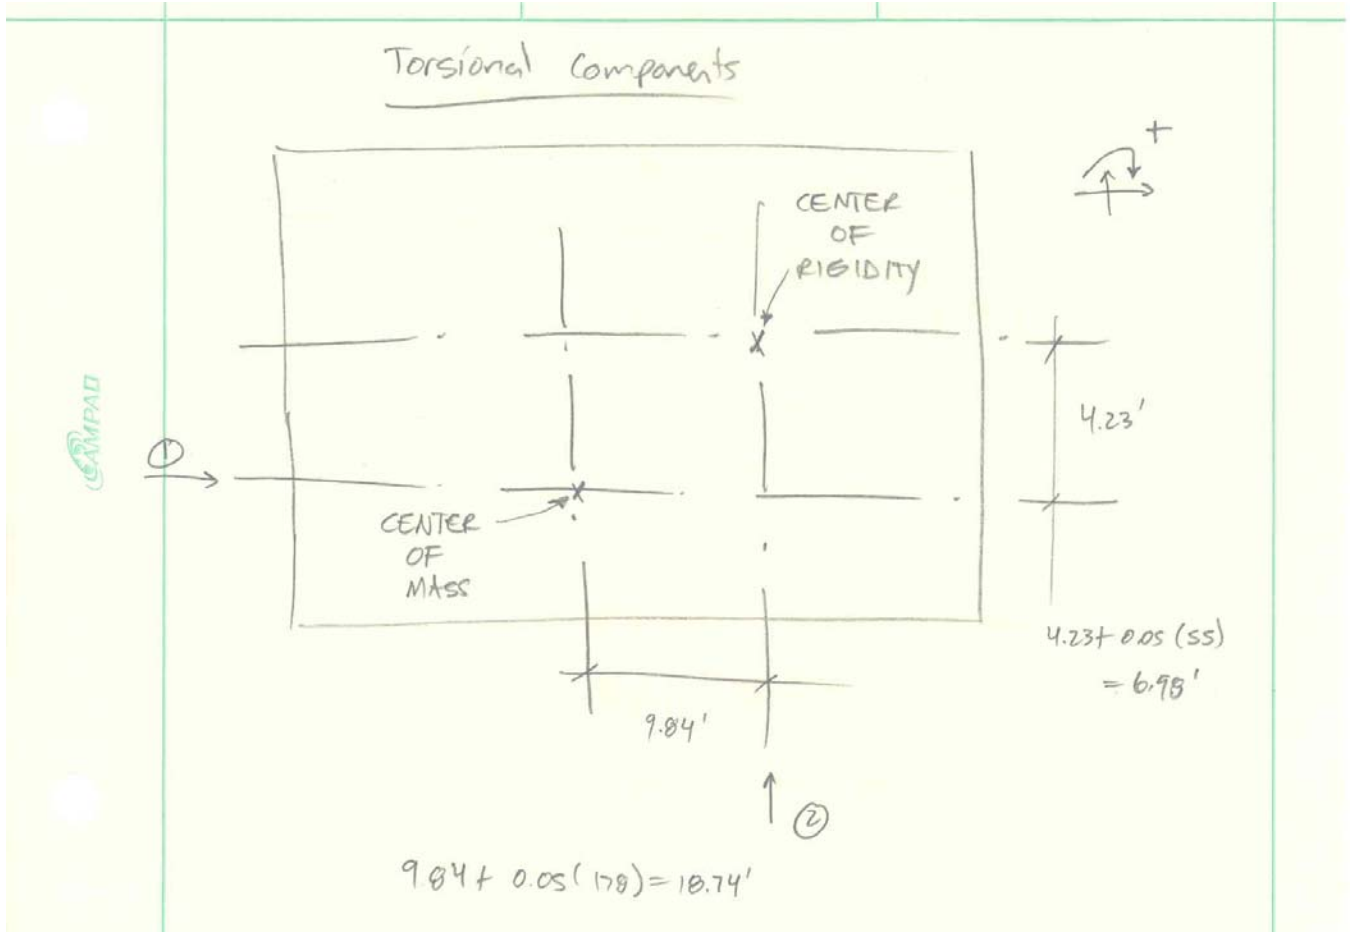 Torsional Components
+
CENTER
OF
RIGIDITY
4.23'
①
CENTER
OF
MASS
4.23+ 0.05 (55)
= 6.98'
9.84'
②
9.84+ 0.05(178)=18.74'
CAMPAD